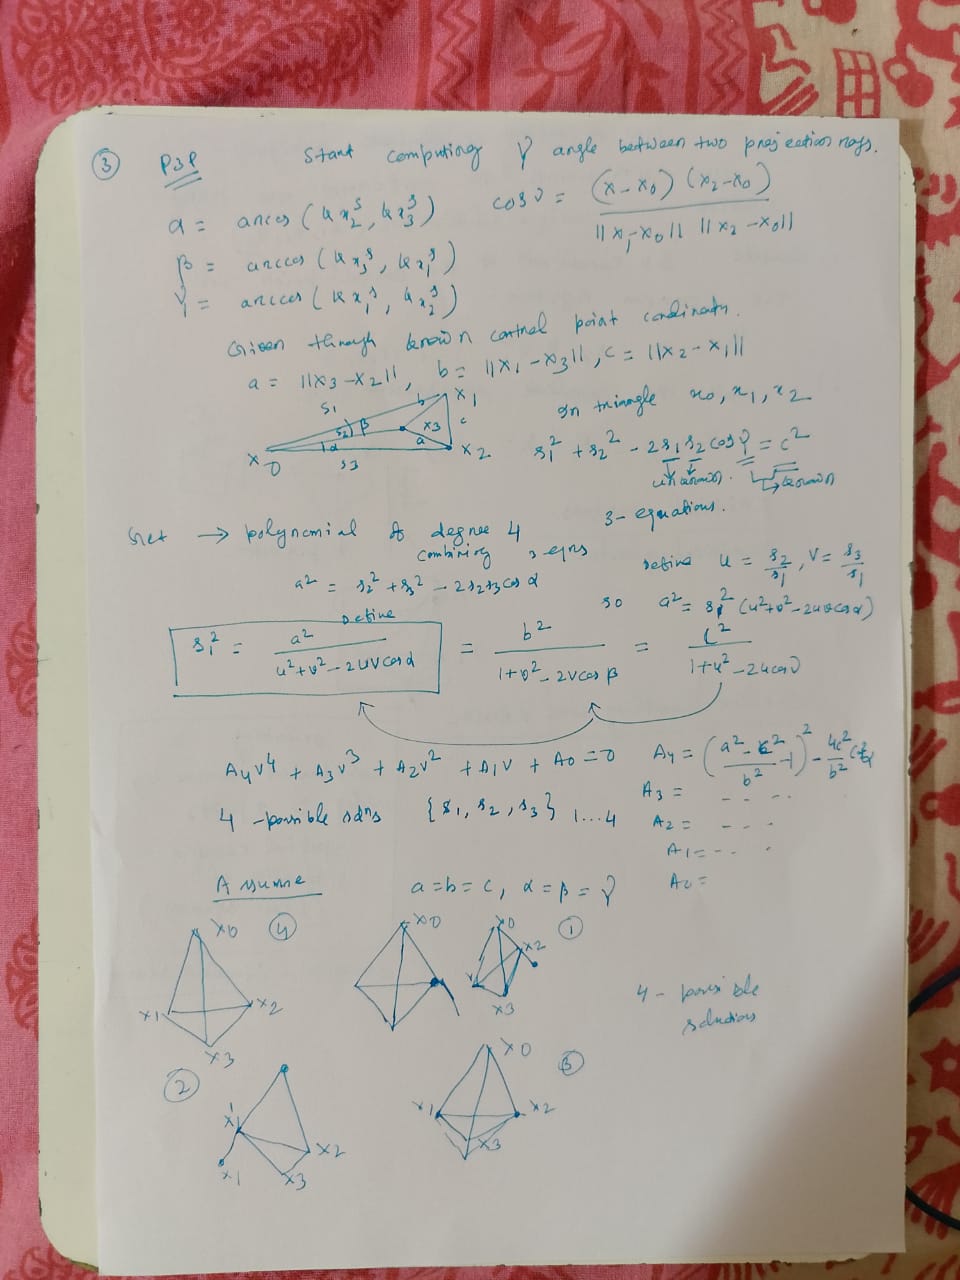 ③ P3P Start computing γ angle between two projection rays.
α = arccos ( k x₂ˢ, k x₃ˢ ) cos γ = (x - x₀) (x₂ - x₀) / ||x₁ - x₀|| ||x₂ - x₀||
β = arccos ( k x₃ˢ, k x₁ˢ )
γ = arccos ( k x₁ˢ, k x₂ˢ )
Given through known control point
a = ||x₃ - x₂||, b = ||x₁ - x₃||, c = ||x₂ - x₁||
S₁ b x₁
S₂ β x₃ c
α a
x₀ S₃ x₂
In triangle x₀, x₁, x₂
s₁² + s₂² - 2s₁s₂ cos γ = c²
unknown. known
3 - equations.
Get → polynomial of degree 4
combining 3 eqns
a² = s₂² + s₃² - 2s₂s₃ cos α
define u = s₂/s₁, v = s₃/s₁
so a² = s₁² (u² + v² - 2uv cos α)
Define
s₁² = a² / u² + v² - 2uv cos α = b² / 1 + v² - 2v cos β = c² / 1 + u² - 2u cos γ
A₄v⁴ + A₃v³ + A₂v² + A₁v + A₀ = 0
A₄ = (a² - c² / b² - 1)² - 4c² / b²
4 - possible solns {s₁, s₂, s₃} 1...4
A₃ = -- --
A₂ = - - -
A₁ = -- -
A₀ =
Assume a = b = c, α = β = γ
x₀ ④ x₁ x₂ x₃
x₀
x₀ ① x₂ x₃
4 - possible
solutions
② x₁' x₁ x₂ x₃
x₀ ③ x₁ x₂ x₃